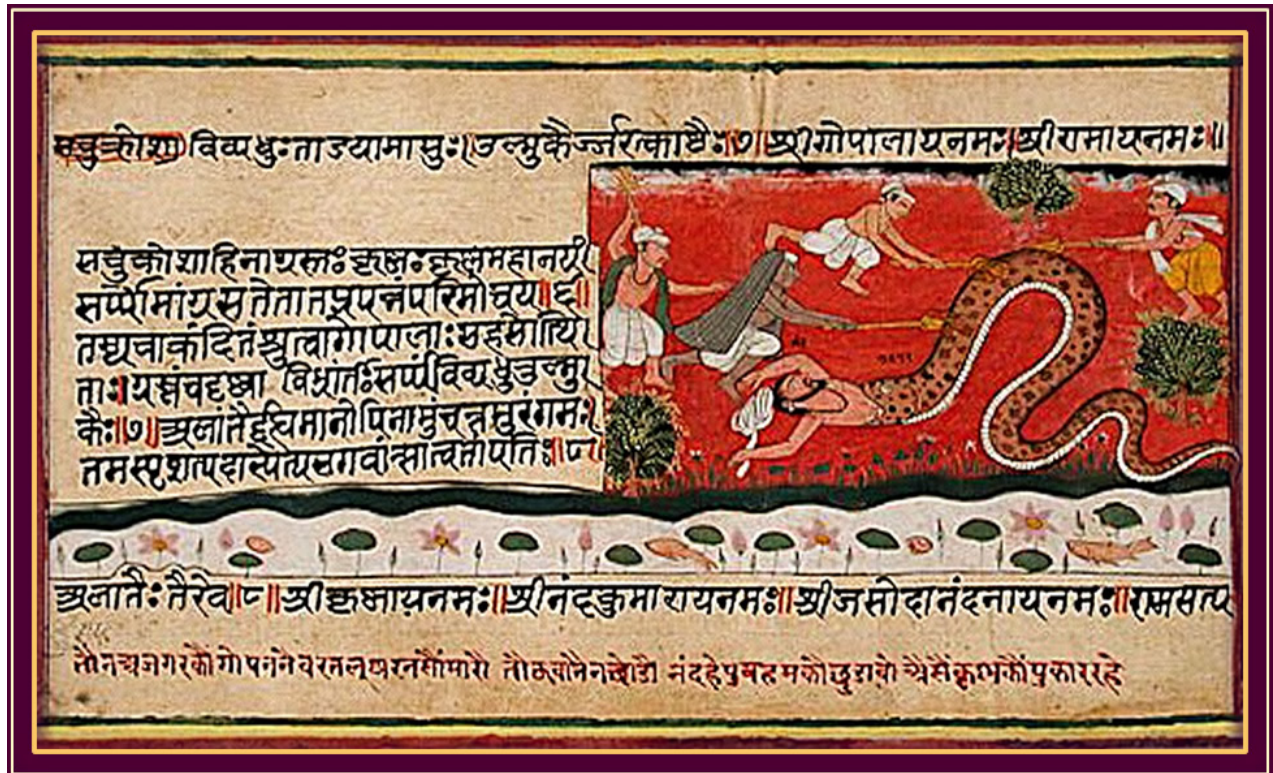 सचुक्रोशा विव्यधुः ताडयामासुः। उल्मुकैर्ज्जरत्काष्टैः॥७॥ श्रीगोपालायनमः॥ श्रीरामायनमः॥
सचुक्रोशाहिनाग्रस्तः कृष्णकृष्णमहानयं
सर्प्पोमांग्रसतेतातप्रपन्नंपरिमोचय॥६॥
तस्यचाक्रंदितंश्रुत्वागोपालाःसहसोत्थि
ताः॥ग्रस्तंचदृष्ट्वा विभ्रांताःसर्प्पंविव्यधुरुल्मु
कैः॥७॥अलातैर्दह्यमानोपिनामुंचत्तमुरंगमः
तमस्पृशत्पदाभ्येत्यभगवान्सात्वतांपतिः॥८॥
अलातैः तैरेव॥८॥श्रीकृष्णायनमः॥श्रीनंदकुमारायनमः॥श्रीजसोदानंदनायनमः॥रामसत्य
तौनअजगरकौगोपननेजरतलूघरनसौंमारौ तौऊवानेनछोडौ नंदहेपुत्रहमकौछुडावो असैंकृष्णकौंपुकाररहे